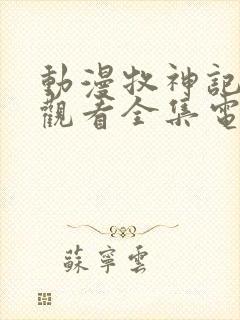 動漫牧神記
觀看全集電
蘇寧雲